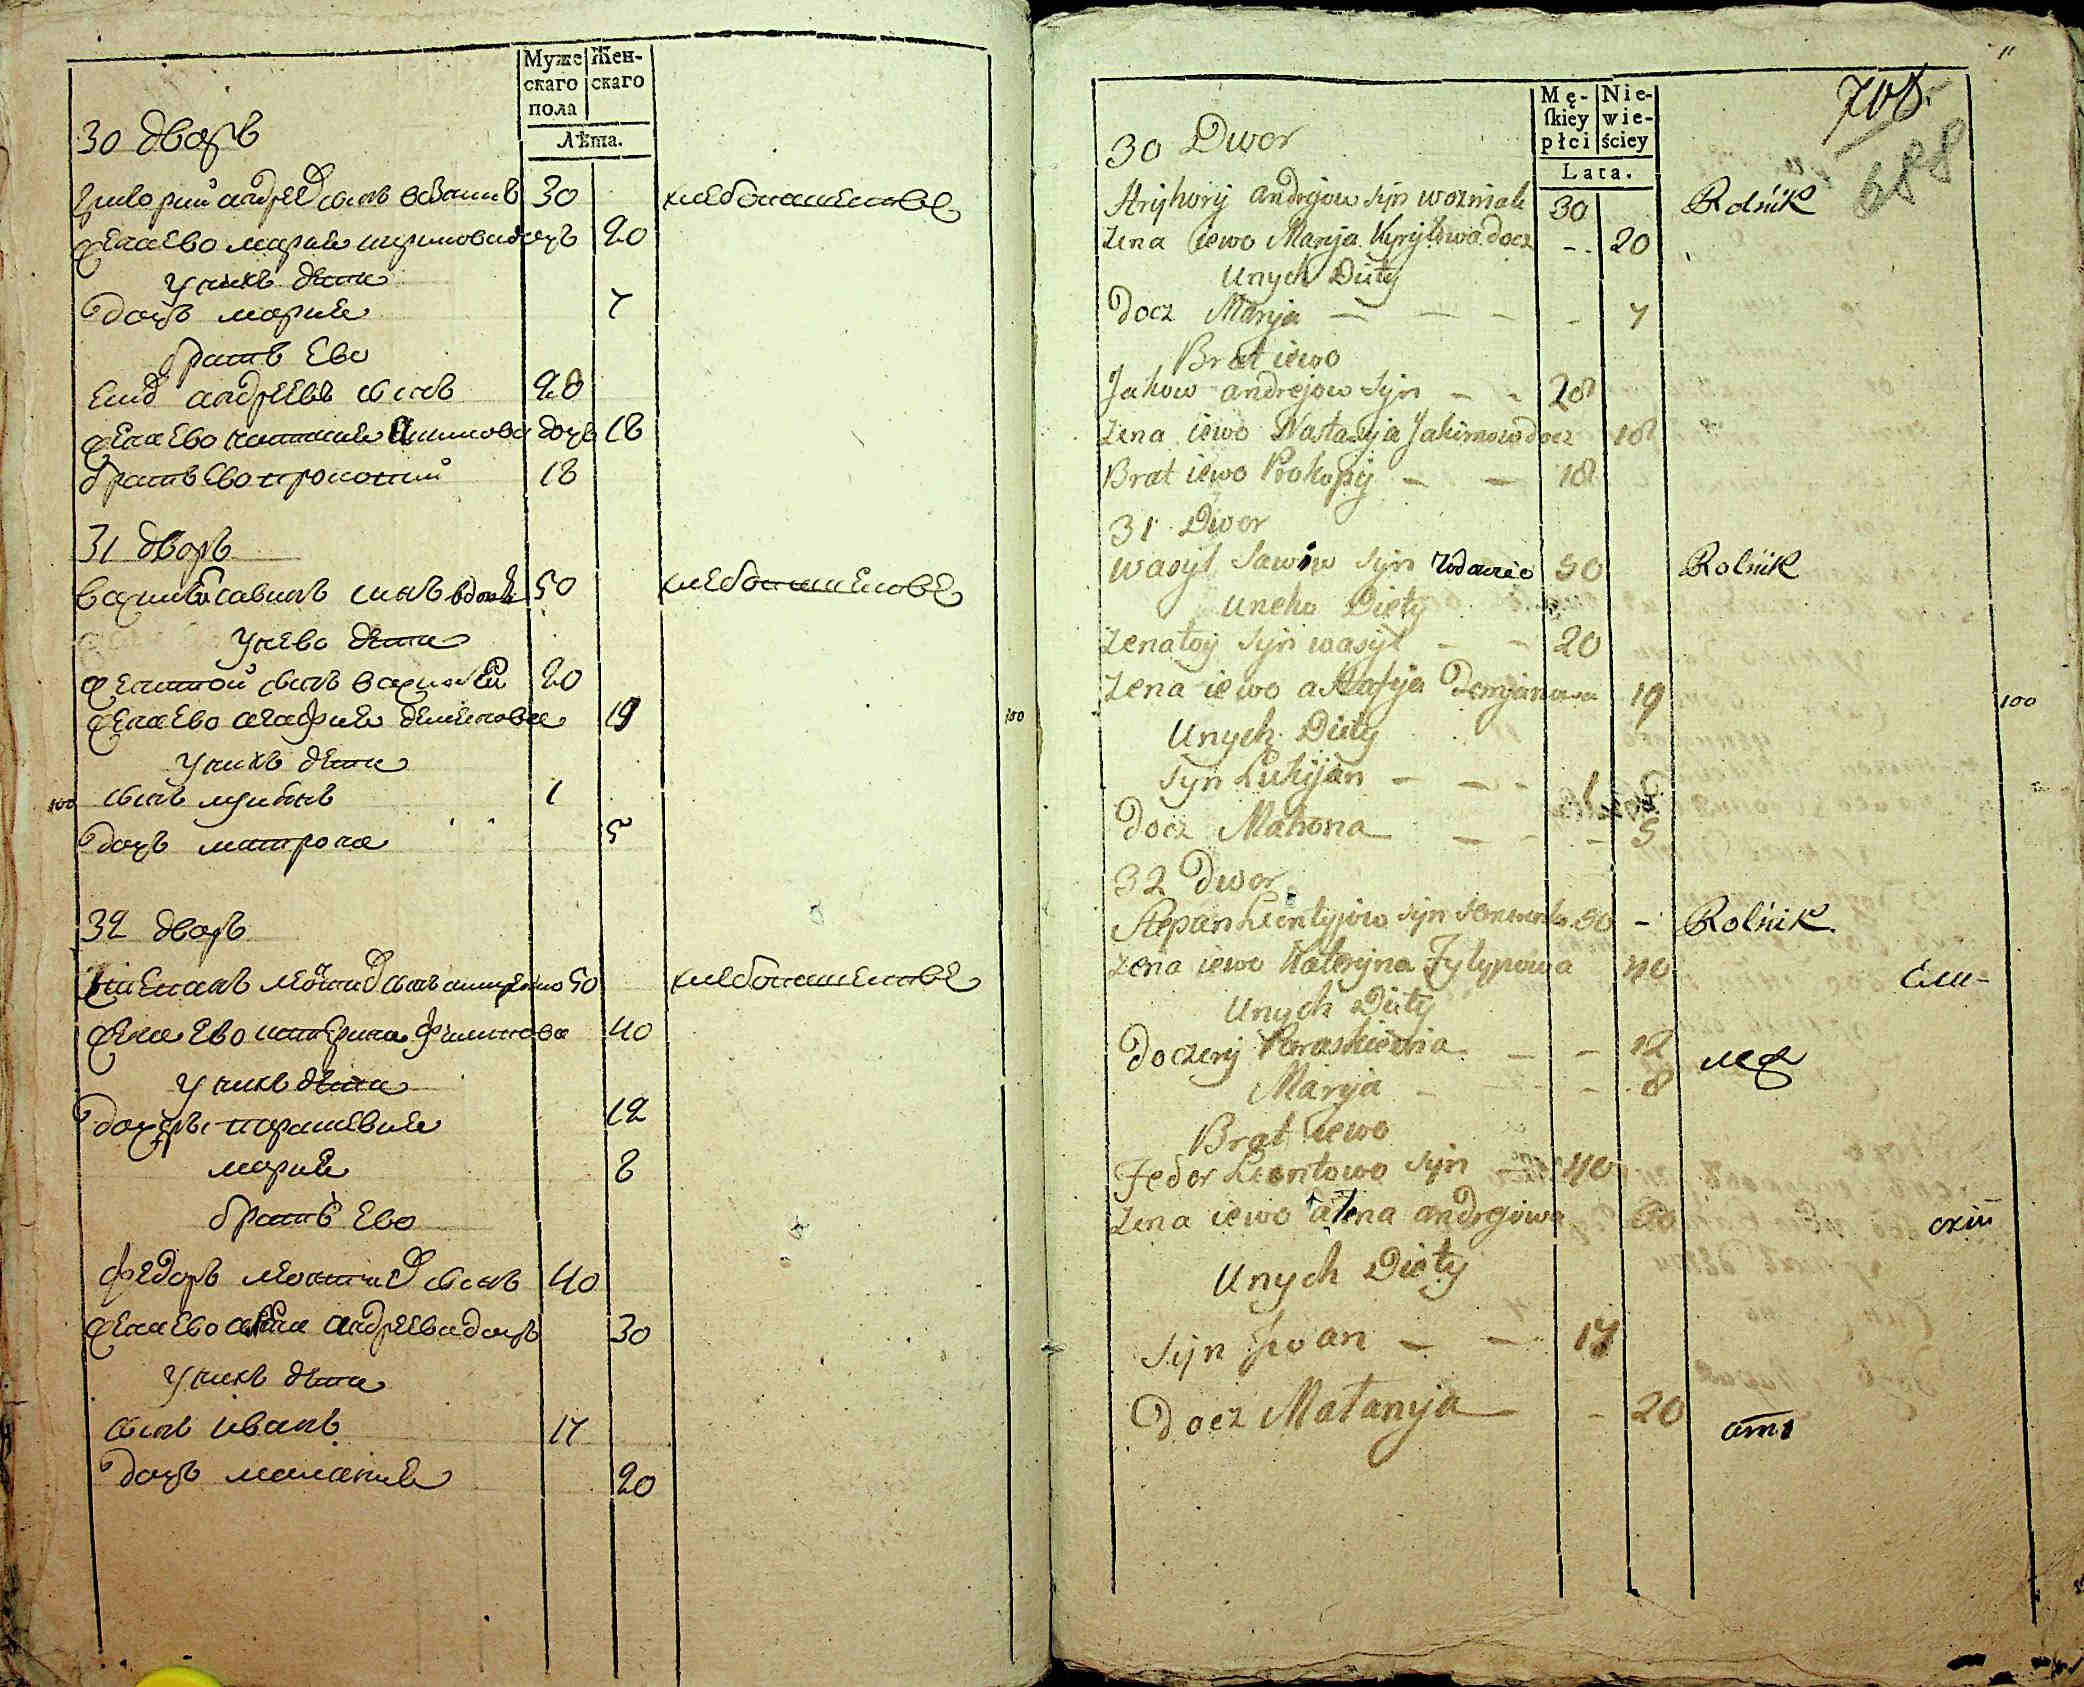 Муже Жен-
скаго скаго
пола
Лѣта.
30 дворъ
григорий андреевъ сынъ 30 хлебопашенствѣ
жена ево мария кирилова дочь 20
у нихъ дети
дочь мария 7
братъ ево
андреевъ сынъ 28
жена ево настасия якимова дочь 18
братъ ево прокопий 18
31 дворъ
василей савинъ сынъ вдовъ 50 хлебопашенствѣ
у нево дети
женатой сынъ василей 20
жена ево агафия демянова 19
у нихъ дети
100 сынъ лукянъ 1
дочь матрона 5
32 дворъ
степанъ леонтиевъ сынъ 50 хлебопашенствѣ
жена ево катерина филипова 40
у нихъ дети
дочери параскевия 12
мария 8
братъ ево
федоръ леонтиевъ сынъ 40
жена ево алена андреева дочь 30
у нихъ дети
сынъ иванъ 17
дочь мелания 20
11
Mę- Nie-
skiey wie-
płci ściey
Lata.
708
688
30 Dwor
Hryhory andrejow syn wozniak 30 Rolnik
Zena iewo Marija Kyryłowa docz - 20
Unych Dity
Docz Marija - 7
Brat iewo
Jakow andrejow Syn - 28
Zena iewo Nastazyja Jakimow docz 18
Brat iewo Prokopij - 18
31 Dwor
Wasyl Sawiw Syn 50 Rolnik
Uneho Diety
Zenatoy Syn wasyl - 20
Zena iewo ahafyja Demjanowa 19
100
Unych Dity
Syn Lukijan - 1
Docz Matrona - 5
32 Dwor
Stepan Leontyjow Syn 50 - Rolnik
Zena iewo Kateryna Fylypowa 40
Unych Dity
Doczery Paraskiewia - 12
Marija - 8
Brat iewo
Fedor Leontowo Syn 40
Zena iewo alena andrejowa 30
Unych Diety
Syn Iwan - 17
Docz Małanija - 20